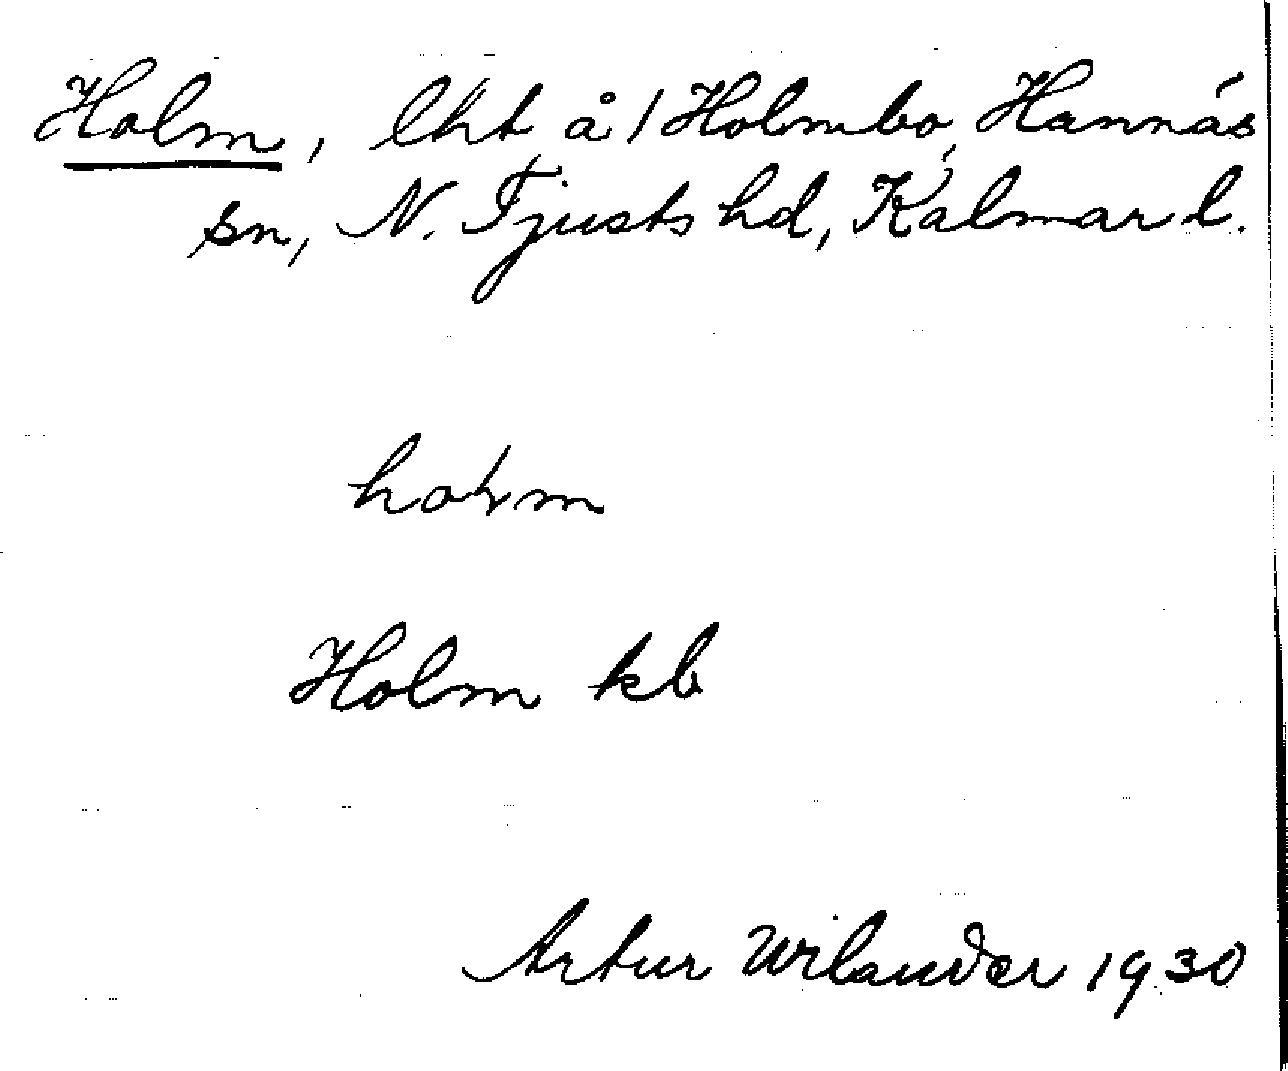 Holm, lht å 1 Holmbo, Hannäs
sn, N. Tjusts hd, Kalmar l.
holm
Holm kb
Artur Wilander 1930